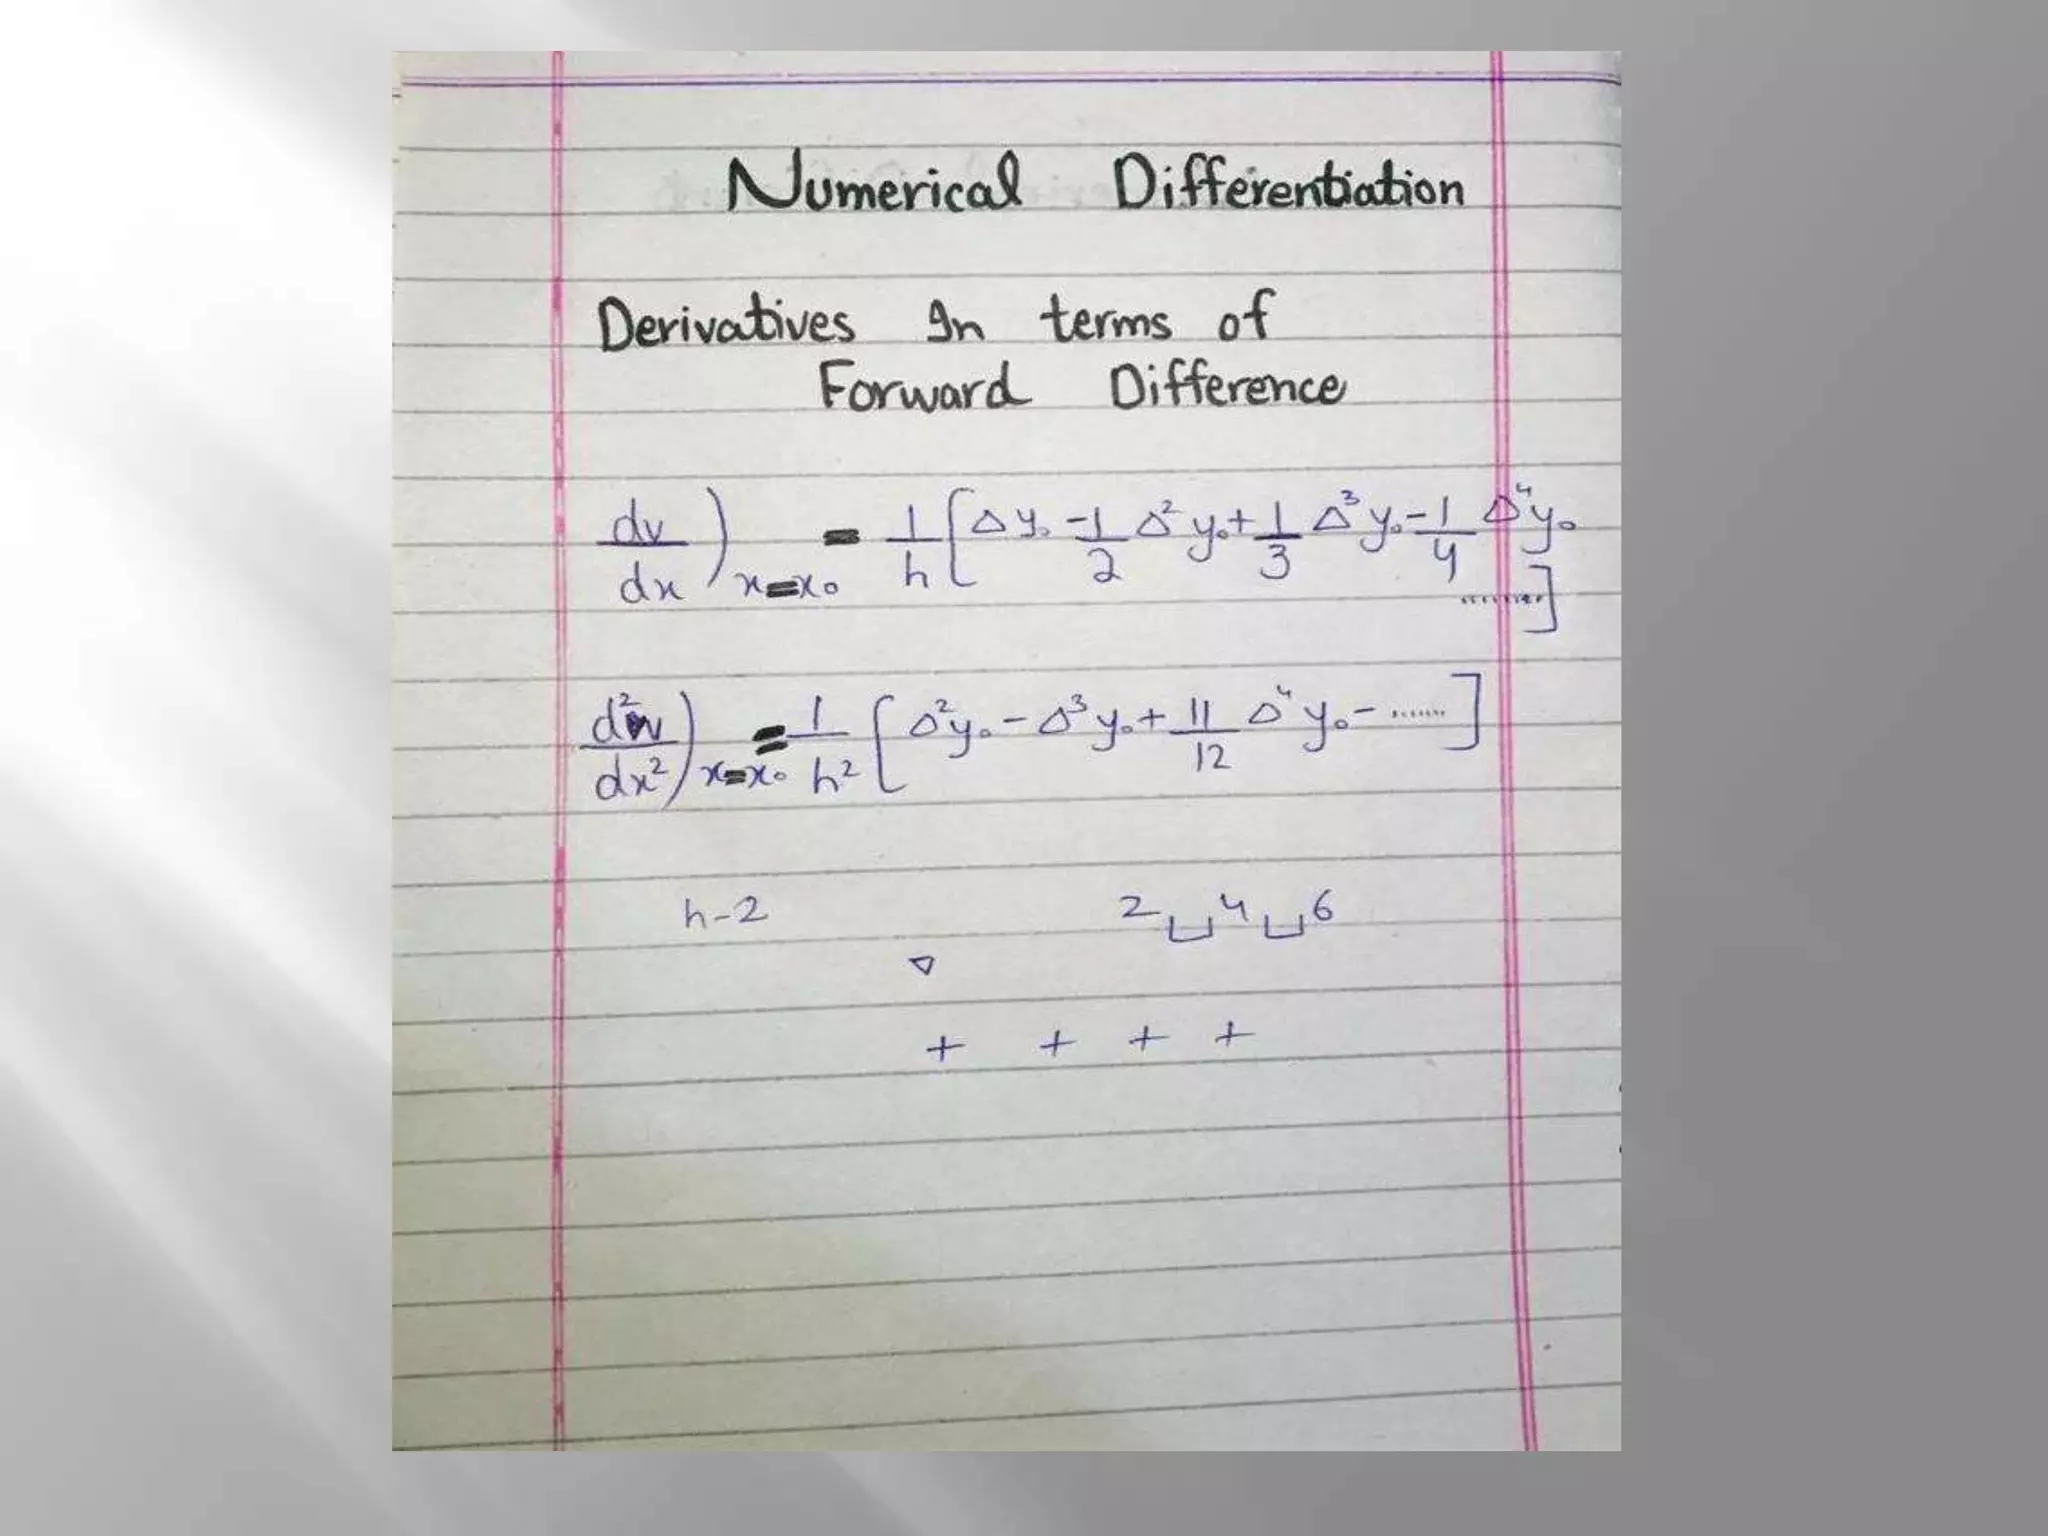 Numerical Differentiation
Derivatives In terms of
Forward Difference
dv/dx)x=x₀ = 1/h [Δy₀ - 1/2 Δ²y₀ + 1/3 Δ³y₀ - 1/4 Δ⁴y₀
........]
d²v/dx²)x=x₀ = 1/h² [Δ²y₀ - Δ³y₀ + 11/12 Δ⁴y₀ - ......]
h-2 2 4 6
▽
+ + + +